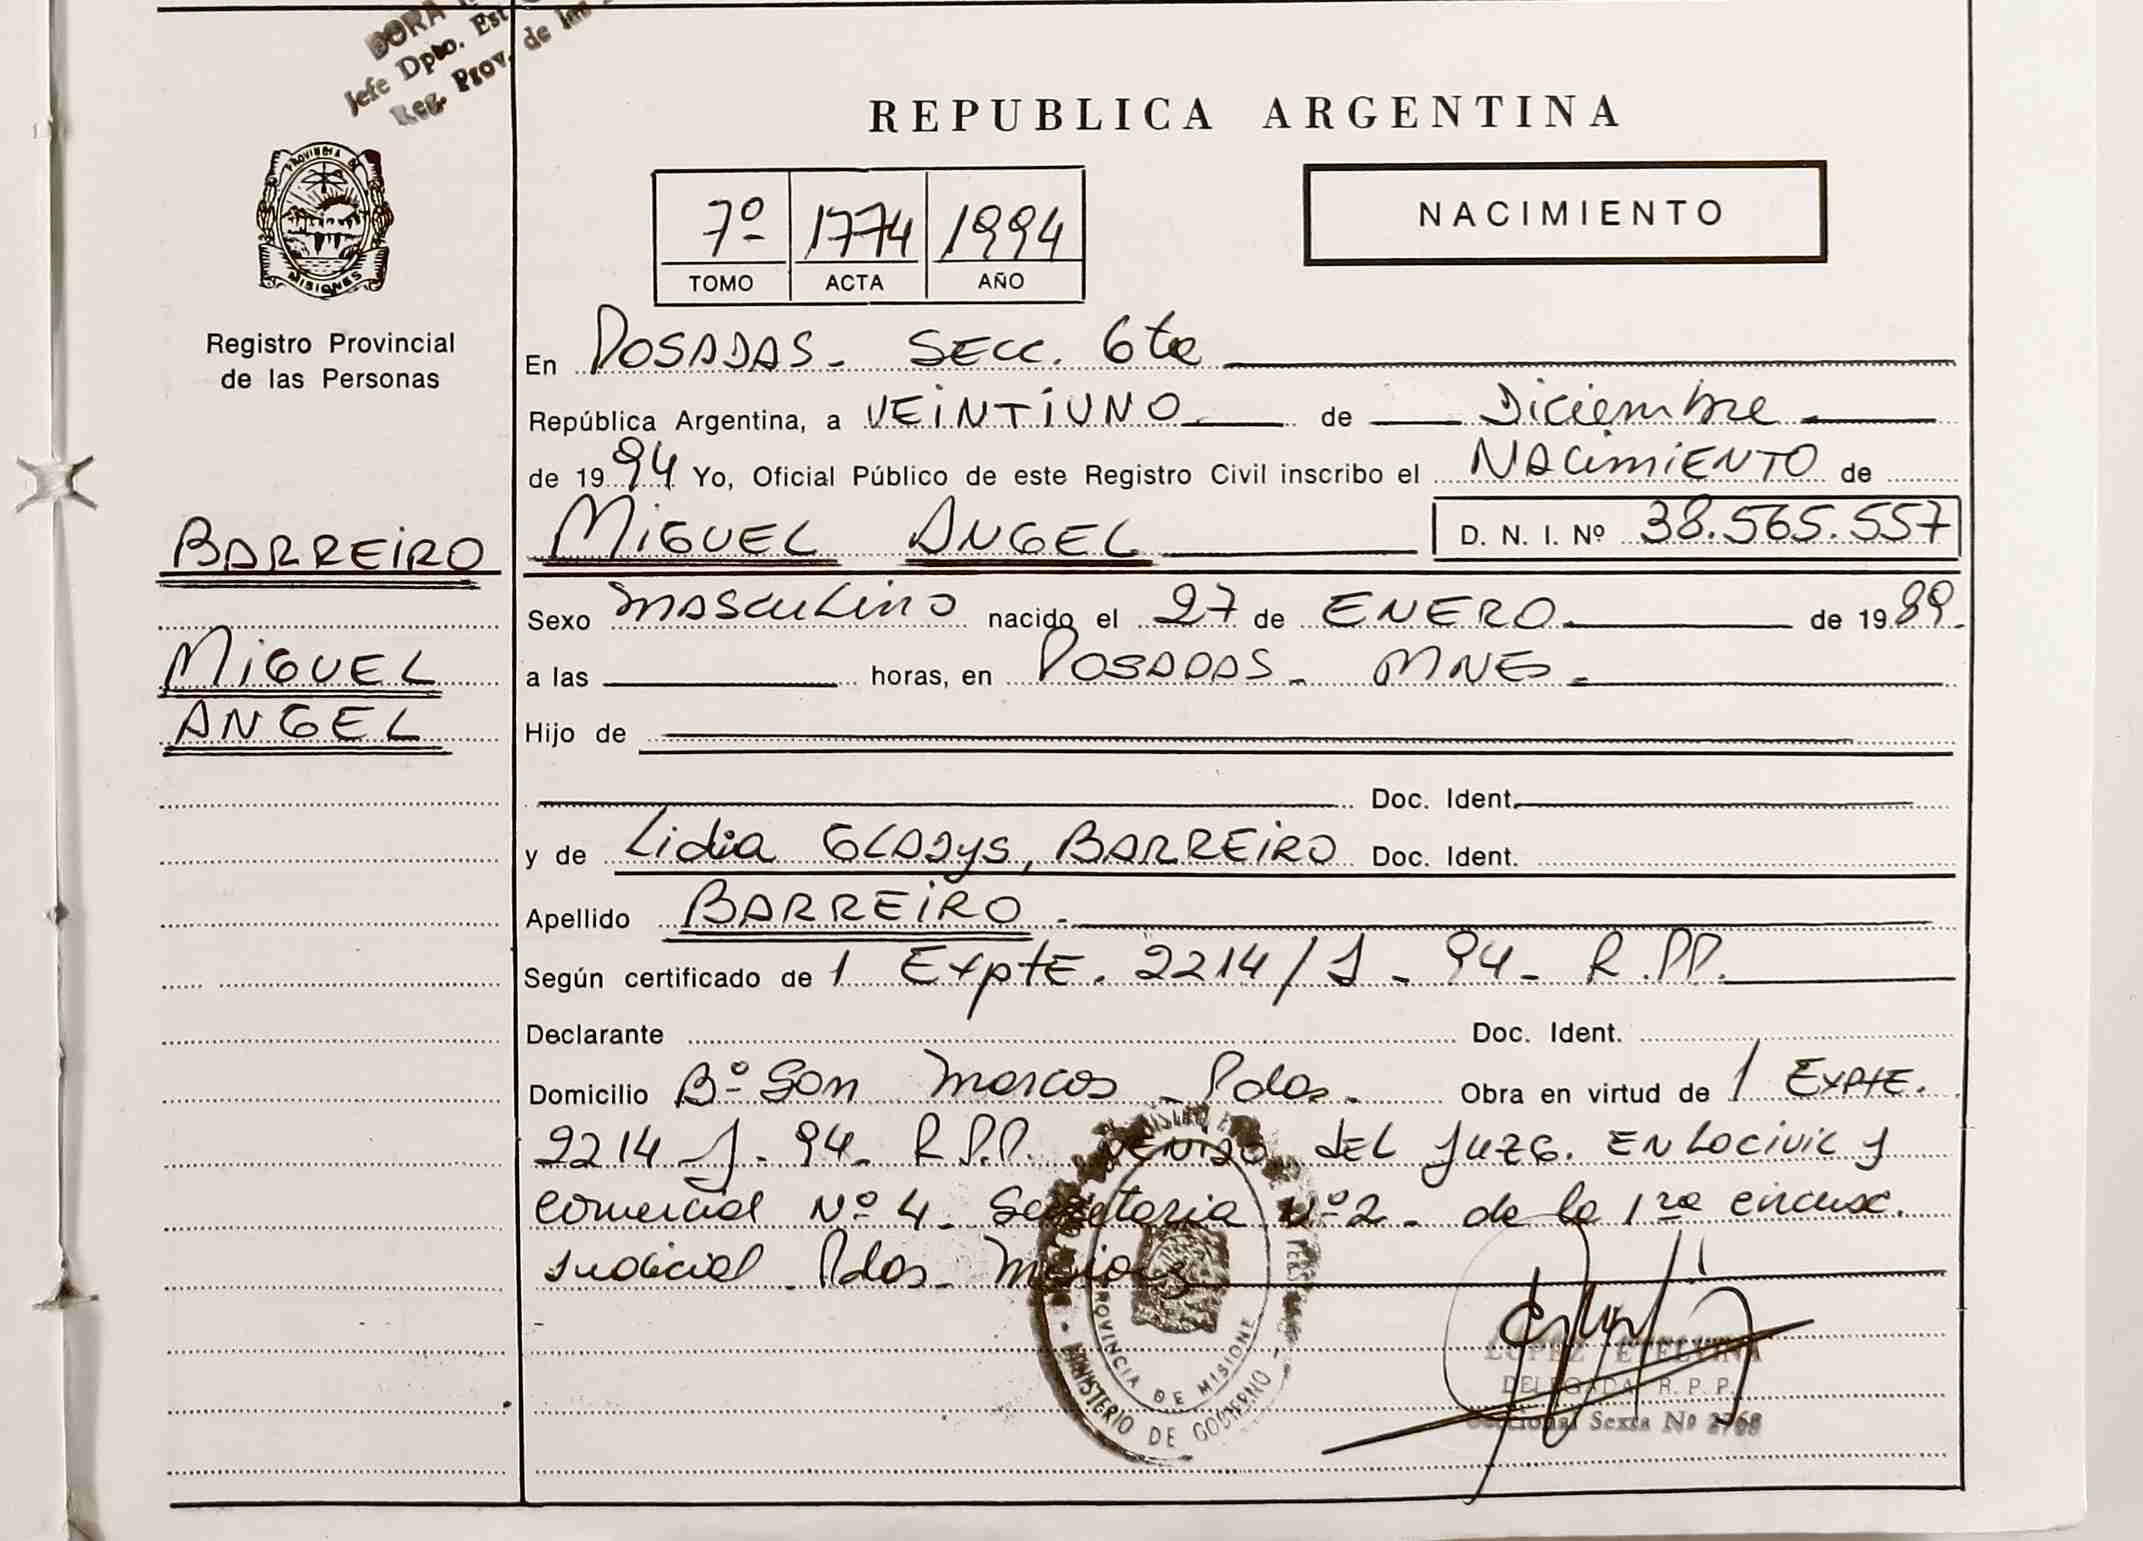 DORA
Jefe Dpto. Est
Reg. Prov. de las
PROVINCIA DE
MISIONES
Registro Provincial
de las Personas
BARREIRO
MIGUEL
ANGEL
REPUBLICA ARGENTINA
7º 1774 1994
TOMO ACTA AÑO
NACIMIENTO
En POSADAS - SECC. 6ta
República Argentina, a VEINTIUNO de Diciembre
de 1994 Yo, Oficial Público de este Registro Civil inscribo el NACIMIENTO de
MIGUEL ANGEL D. N. I. Nº 38.565.557
Sexo MASCULINO nacido el 27 de ENERO de 1989
a las horas, en POSADAS - MNES -
Hijo de
Doc. Ident.
y de Lidia GLADYS, BARREIRO Doc. Ident.
Apellido BARREIRO -
Según certificado de 1 Expte. 2214/J - 94 - R.P.P.
Declarante Doc. Ident.
Domicilio Bº San Marcos - Pdas. Obra en virtud de 1 EXPTE.
2214 J - 94 - R.P.P. DEL JUZG. EN LO CIVIL y
comercial Nº 4 - Secretaria Nº 2 - de la 1ra circunsc.
Judicial Pdas. Misiones
PROVINCIA DE MISIONES
MINISTERIO DE GOBIERNO
LOPEZ ETELVINA
DELEGADA R. P. P.
Seccional Sexta Nº 2768